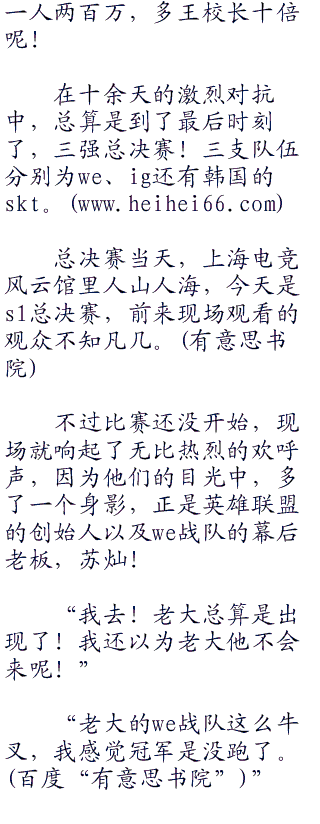 一人两百万，多王校长十倍
呢！
在十余天的激烈对抗
中，总算是到了最后时刻
了，三强总决赛！三支队伍
分别为we、ig还有韩国的
skt。(www.heihei66.com)
总决赛当天，上海电竞
风云馆里人山人海，今天是
s1总决赛，前来现场观看的
观众不知凡几。(有意思书
院)
不过比赛还没开始，现
场就响起了无比热烈的欢呼
声，因为他们的目光中，多
了一个身影，正是英雄联盟
的创始人以及we战队的幕后
老板，苏灿！
“我去！老大总算是出
现了！我还以为老大他不会
来呢！”
“老大的we战队这么牛
叉，我感觉冠军是没跑了。
(百度“有意思书院”)”